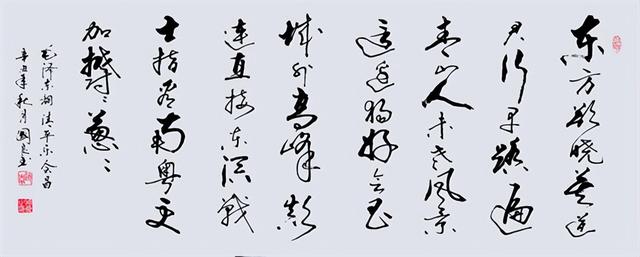 东方欲晓莫道
君行早踏遍
青山人未老风景
这边独好会昌
城外高峰颠
连直接东溟战
士指看南粤更
加欝々葱々
毛泽东词清平乐会昌
辛丑年秋月國良书